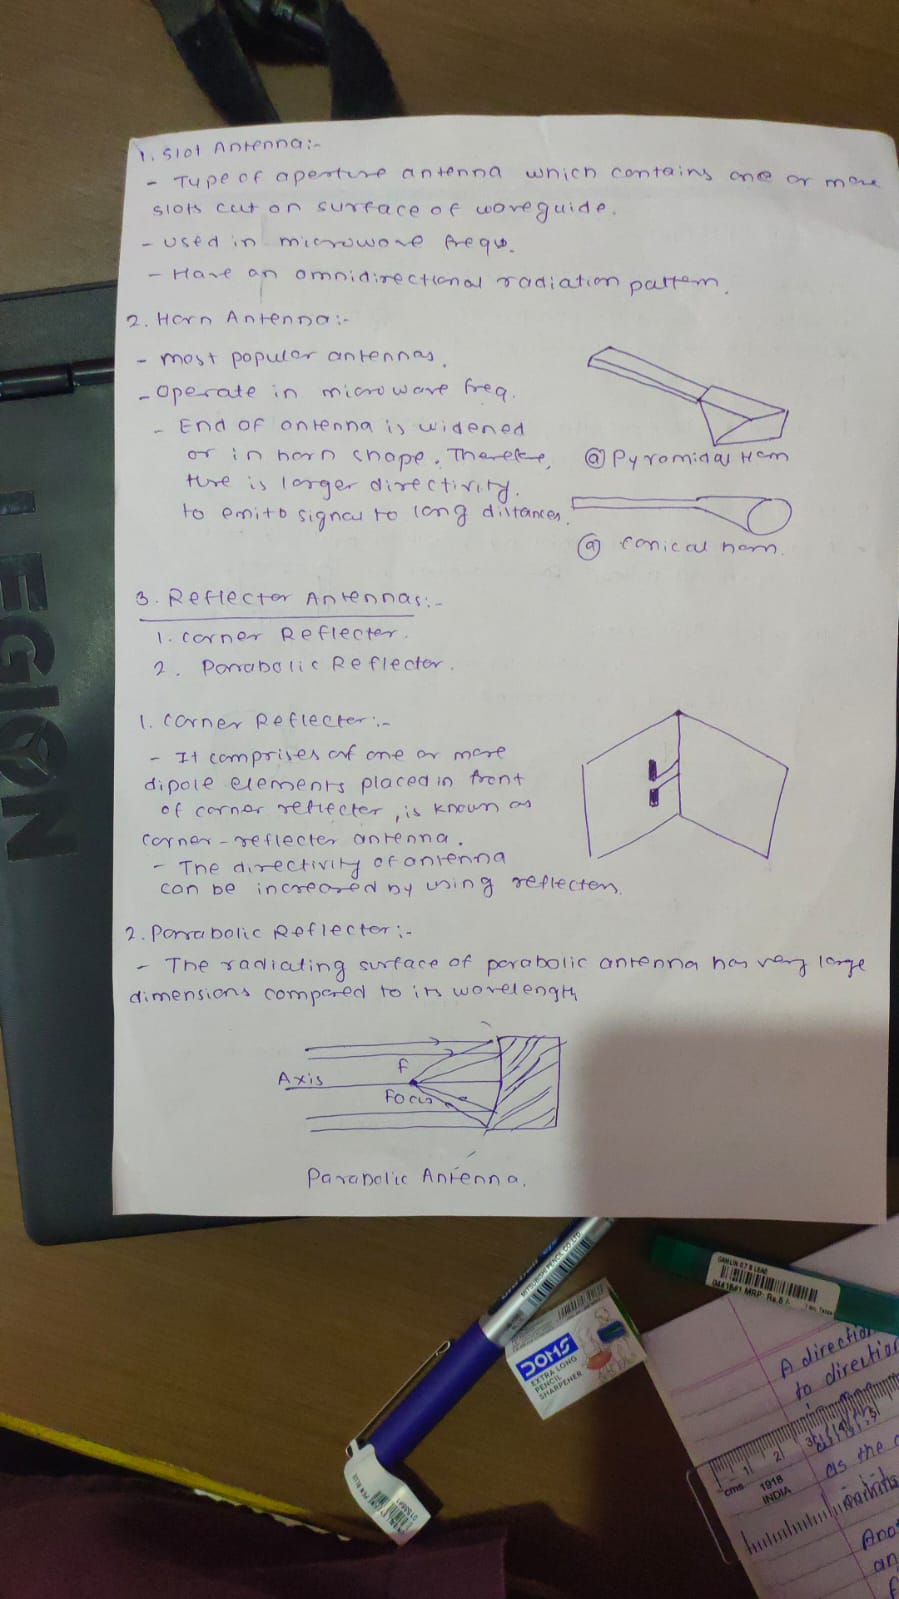 1. Slot Antenna:-
- Type of aperture antenna which contains one or more
slots cut on surface of waveguide.
- used in microwave freqs.
- Have an omnidirectional radiation pattern.
2. Horn Antenna:-
- most popular antennas.
- Operate in microwave freq.
- End of antenna is widened
or in horn shape. Therefore,
there is larger directivity.
to emit signal to long distances.
@ Pyramidal Horn
@ conical horn.
3. Reflector Antennas:-
1. Corner Reflecter.
2. Parabolic Reflector.
1. Corner Reflecter:-
- It comprises of one or more
dipole elements placed in front
of corner reflecter, is known as
corner-reflecter antenna.
- The directivity of antenna
can be increased by using reflecters.
2. Parabolic Reflector:-
- The radiating surface of parabolic antenna has very large
dimensions compared to its wavelength
F
Axis
Focus
Parabolic Antenna.
LEGION
MITSUBISHI PENCIL CO. LTD
DOMS
EXTRA LONG
PENCIL
SHARPENER
MRP: Rs.5
A direction
to direction
as the
cms
1918
INDIA
1 2 3 4 5
an